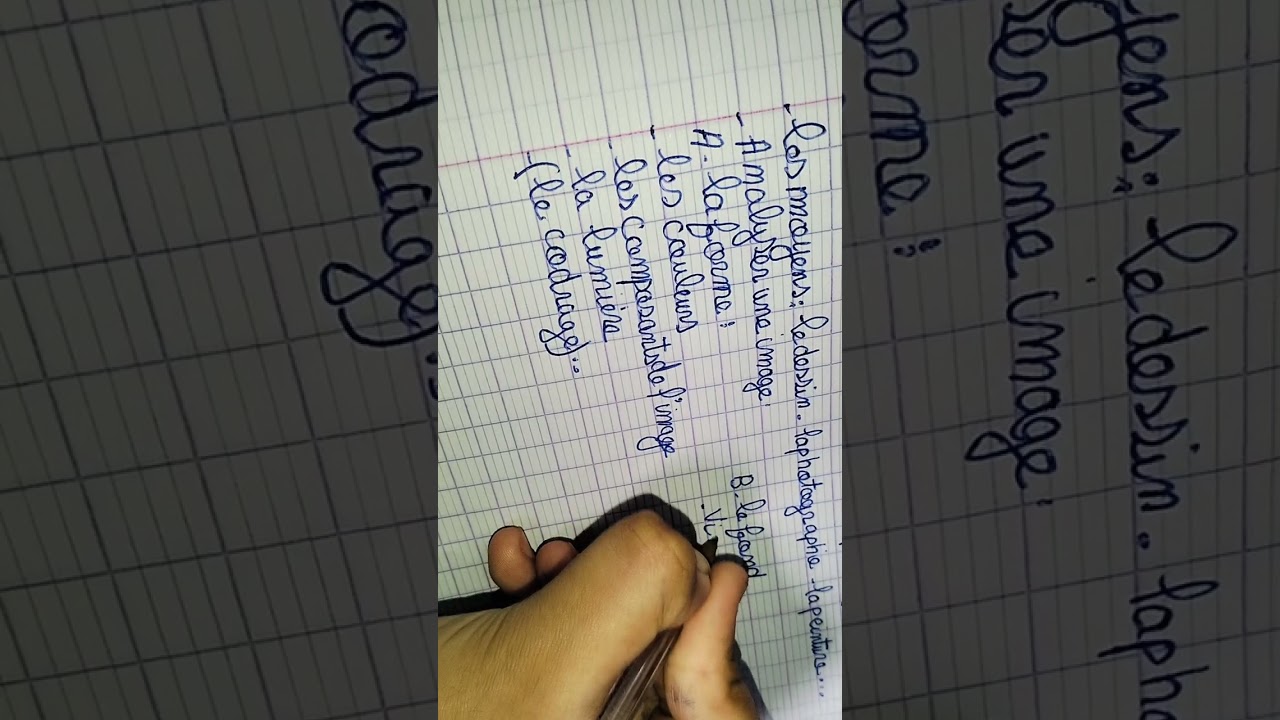 - Les moyens: le dessin - la photographie - la peinture...
- Analyser une image:
A. la forme: B. le fond
- les couleurs . Vi
- les composants de l'image
- la lumière
- (le codrage)...